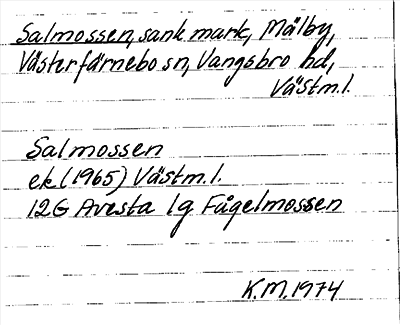 Salmossen, sank mark, Målby,
Västerfärnebo sn, Vangsbro hd,
Västm.l.
Salmossen
ek (1965) Västm.l.
12G Avesta 1g Fågelmossen
K.M. 1974